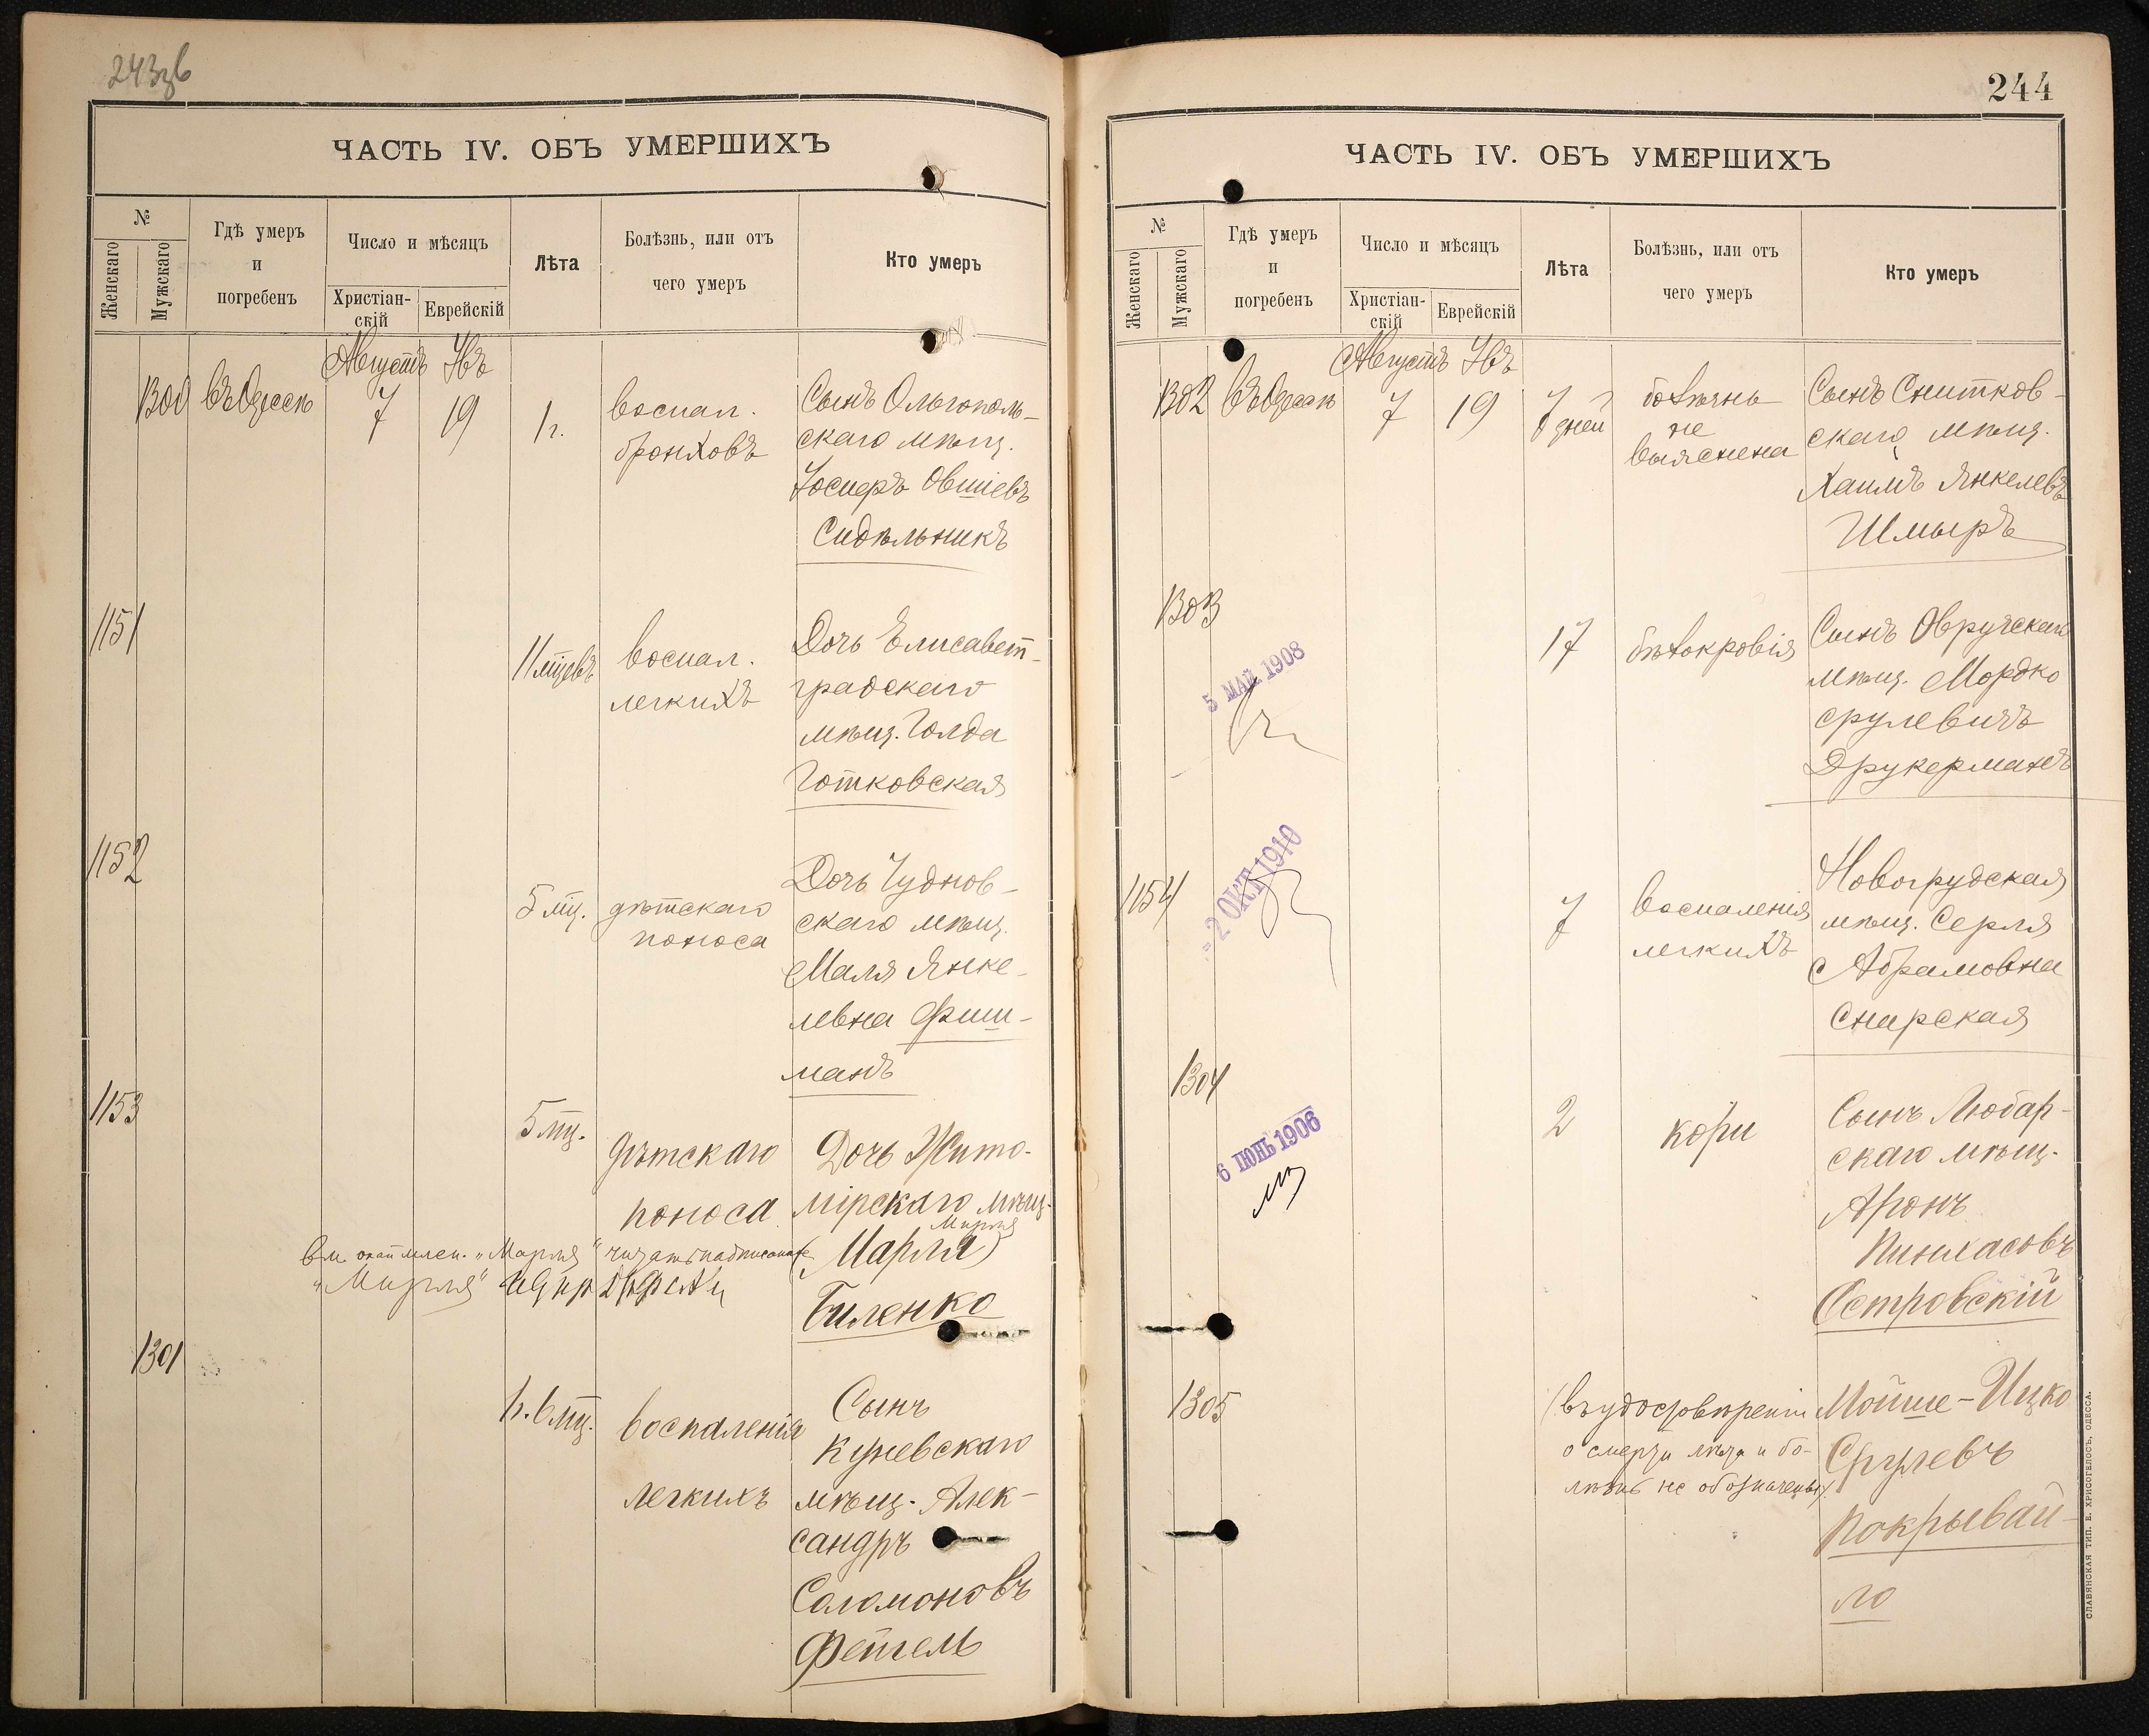 243зв
ЧАСТЬ IV. ОБЪ УМЕРШИХЪ
№
Женскаго
Мужскаго
Гдѣ умеръ
и
погребенъ
Число и мѣсяцъ
Христіан-
скій
Еврейскій
Лѣта
Болѣзнь, или отъ
чего умеръ
Кто умеръ
Августъ
1300
въ Одессѣ
7
19
1 г.
воспал.
бронховъ
Сынъ Ольгополь-
скаго мѣщ.
Іосиеръ Овшіевъ
Сидѣльникъ
1151
11 мцевъ
воспал.
легкихъ
Дочь Елисавет-
градскаго
мѣщ. Голда
Готковская
1152
5 мц.
дѣтскаго
поноса
Дочь Чуднов-
скаго мѣщ.
Маля Янке-
левна Фиш-
манъ
1153
5 мц.
дѣтскаго
поноса
Дочь Жито-
мірскаго мѣщ.
Мирля
(Марля)
Биленко
вм. "Марля" читать надписанное
"Мирля"
1301
1 г. 6 мц.
воспаленія
легкихъ
Сынъ
Куневскаго
мѣщ. Алек-
сандръ
Соломоновъ
Фейгель
244
ЧАСТЬ IV. ОБЪ УМЕРШИХЪ
№
Женскаго
Мужскаго
Гдѣ умеръ
и
погребенъ
Число и мѣсяцъ
Христіан-
скій
Еврейскій
Лѣта
Болѣзнь, или отъ
чего умеръ
Кто умеръ
Августъ
1302
въ Одессѣ
7
19
7 дней
болѣзнь
не
выяснена
Сынъ Снитков-
скаго мѣщ.
Хаимъ Янкелевъ
Шмыръ
1303
5 МАЙ 1908
17
бѣлокровія
Сынъ Овручскаго
мѣщ. Мордко
Срулевичъ
Друкерманъ
1154
- 2 ОКТ 1910
7
воспаленія
легкихъ
Новогрудская
мѣщ. Серля
Абрамовна
Снарская
1304
6 ІЮНЬ 1906
2
кори
Сынъ Любар-
скаго мѣщ.
Аронъ
Пинхасовъ
Островскій
1305
(въ удостовѣреніи
о смерти лѣта и бо-
лѣзнь не обозначены)
Мойше-Ицко
Срулевъ
Покрывай-
ло
СЛАВЯНСКАЯ ТИП. Е. ХРИСОГЕЛОСЪ, ОДЕССА.